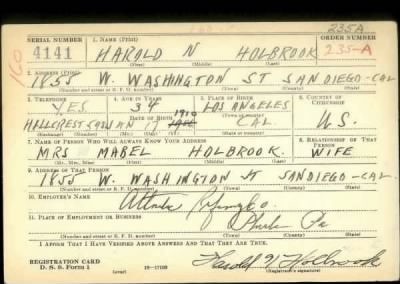 235A
SERIAL NUMBER 1. NAME (Print) ORDER NUMBER
4141 HAROLD N HOLBROOK 235-A
(First) (Middle) (Last)
160
2. ADDRESS (Print)
1855 W. WASHINGTON ST SAN DIEGO-CAL
(Number and street or R. F. D. number) (Town) (County) (State)
3. TELEPHONE 4. AGE IN YEARS 5. PLACE OF BIRTH 6. COUNTRY OF CITIZENSHIP
YES 34 LOS ANGELES
DATE OF BIRTH 1910
HILLCREST JAN 7 CAL U.S.
(Exchange) (Number) (Mo.) (Day) (Yr.) (State or country)
7. NAME OF PERSON WHO WILL ALWAYS KNOW YOUR ADDRESS 8. RELATIONSHIP OF THAT PERSON
MRS MABEL HOLBROOK. WIFE
(Mr., Mrs., Miss) (First) (Middle) (Last)
9. ADDRESS OF THAT PERSON
1855 W. WASHINGTON ST SANDIEGO-CAL
(Number and street or R. F. D. number) (Town) (County) (State)
10. EMPLOYER'S NAME
Atlantic Refining Co.
11. PLACE OF EMPLOYMENT OR BUSINESS
Pa
(Number and street or R. F. D. number) (Town) (County) (State)
I AFFIRM THAT I HAVE VERIFIED ABOVE ANSWERS AND THAT THEY ARE TRUE.
REGISTRATION CARD
D. S. S. Form 1 (over) Harold N Holbrook
(Registrant's signature)